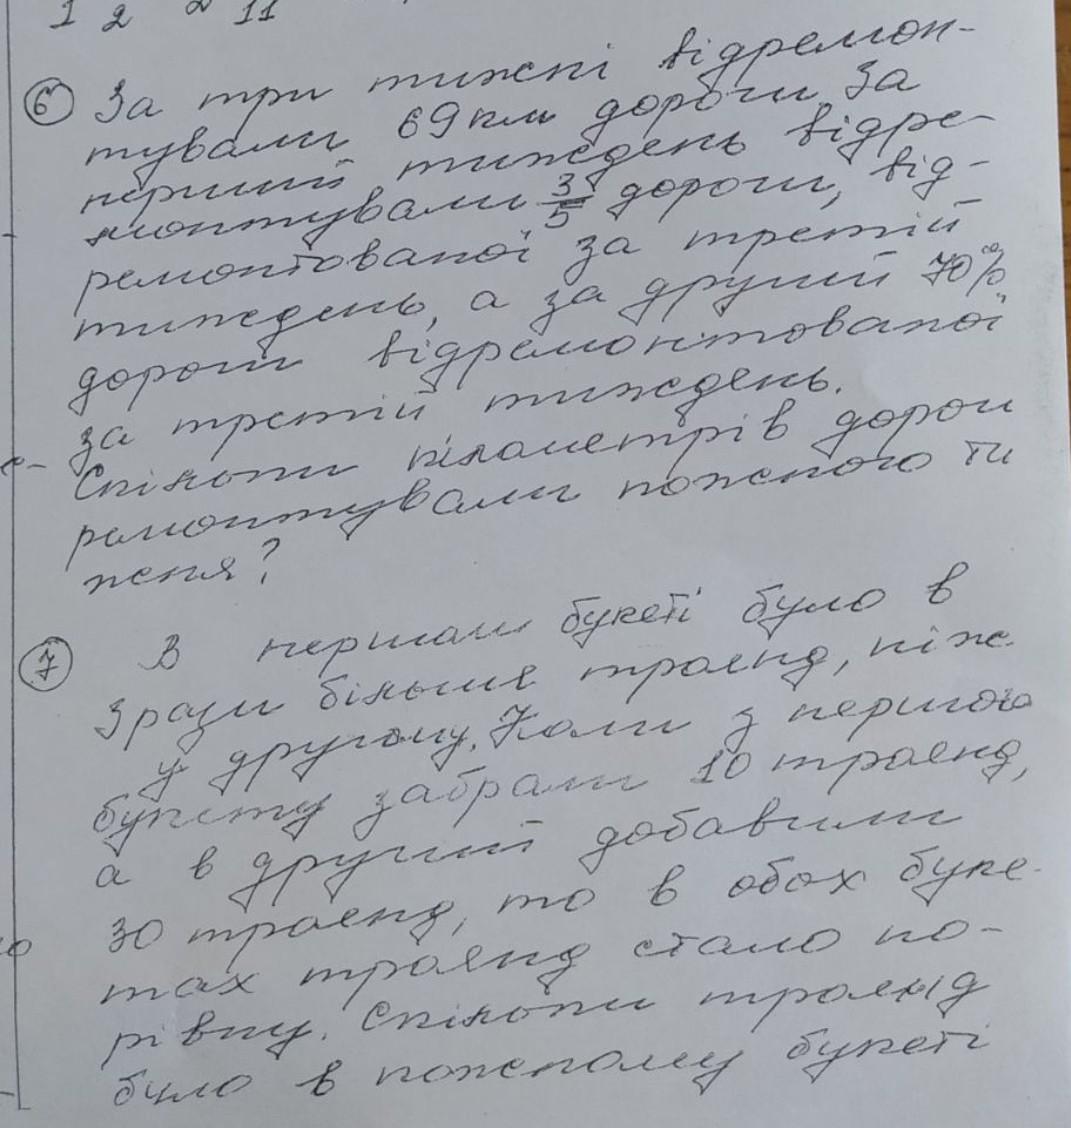 1 2 2 11
6 За три тижні відремон-
тували 69 км дороги За
перший тиждень відре-
монтували 3/5 дороги, від-
ремонтованої за третій
тиждень, а за другий 70%
дороги відремонтованої
за третій тиждень.
Скільки кілометрів дороги
ремонтували кожного ти
жня?
7 В першому букеті було в
3 рази більше троянд, ніж
у другому. Коли з першого
букету забрали 10 троянд,
а в другий добавили
30 троянд, то в обох буке-
тах троянд стало по-
рівну. Скільки троянд
було в кожному букеті